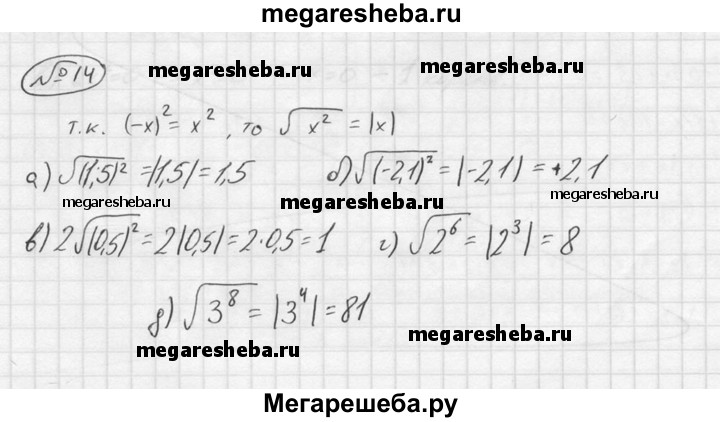 megaresheba.ru
№ 14
megaresheba.ru
т.к. (-x)² = x², то √x² = |x|
а) √(1,5)² = |1,5| = 1,5 б) √(-2,1)² = |-2,1| = +2,1
megaresheba.ru megaresheba.ru megaresheba.ru
в) 2√(0,5)² = 2|0,5| = 2·0,5 = 1 г) √2⁶ = |2³| = 8
д) √3⁸ = |3⁴| = 81
megaresheba.ru megaresheba.ru
Мегарешеба.ру